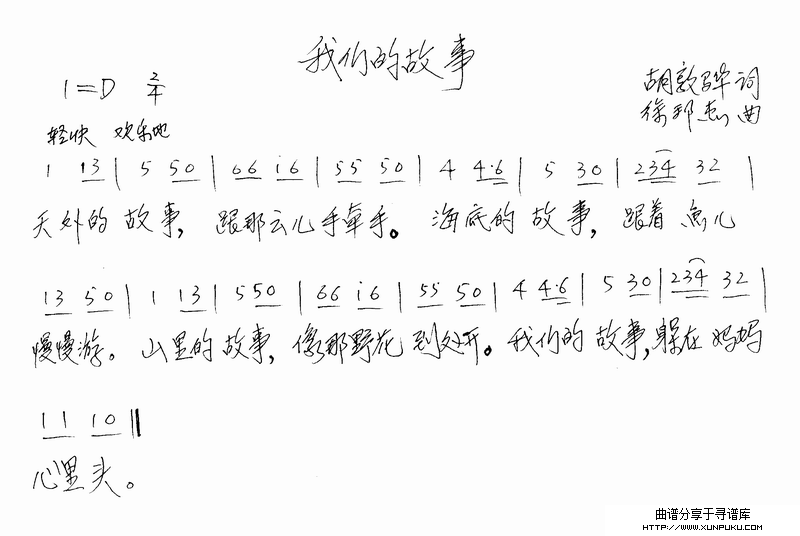 我们的故事
1=D 2/4
胡敦骅 词
徐邦杰 曲
轻快 欢乐地
1 13 | 5 50 | 66 i6 | 55 50 | 4 4·6 | 5 30 | 234 32 |
天外的 故事, 跟那云儿手牵手。 海底的 故事, 跟着 鱼儿
13 50 | 1 13 | 5 50 | 66 i6 | 55 50 | 4 4·6 | 5 30 | 234 32 |
慢慢游。 山里的 故事, 像那野花 到处开。 我们的 故事, 躲在 妈妈
11 10 ‖
心里头。
曲谱分享于寻谱库
HTTP://WWW.XUNPUKU.COM